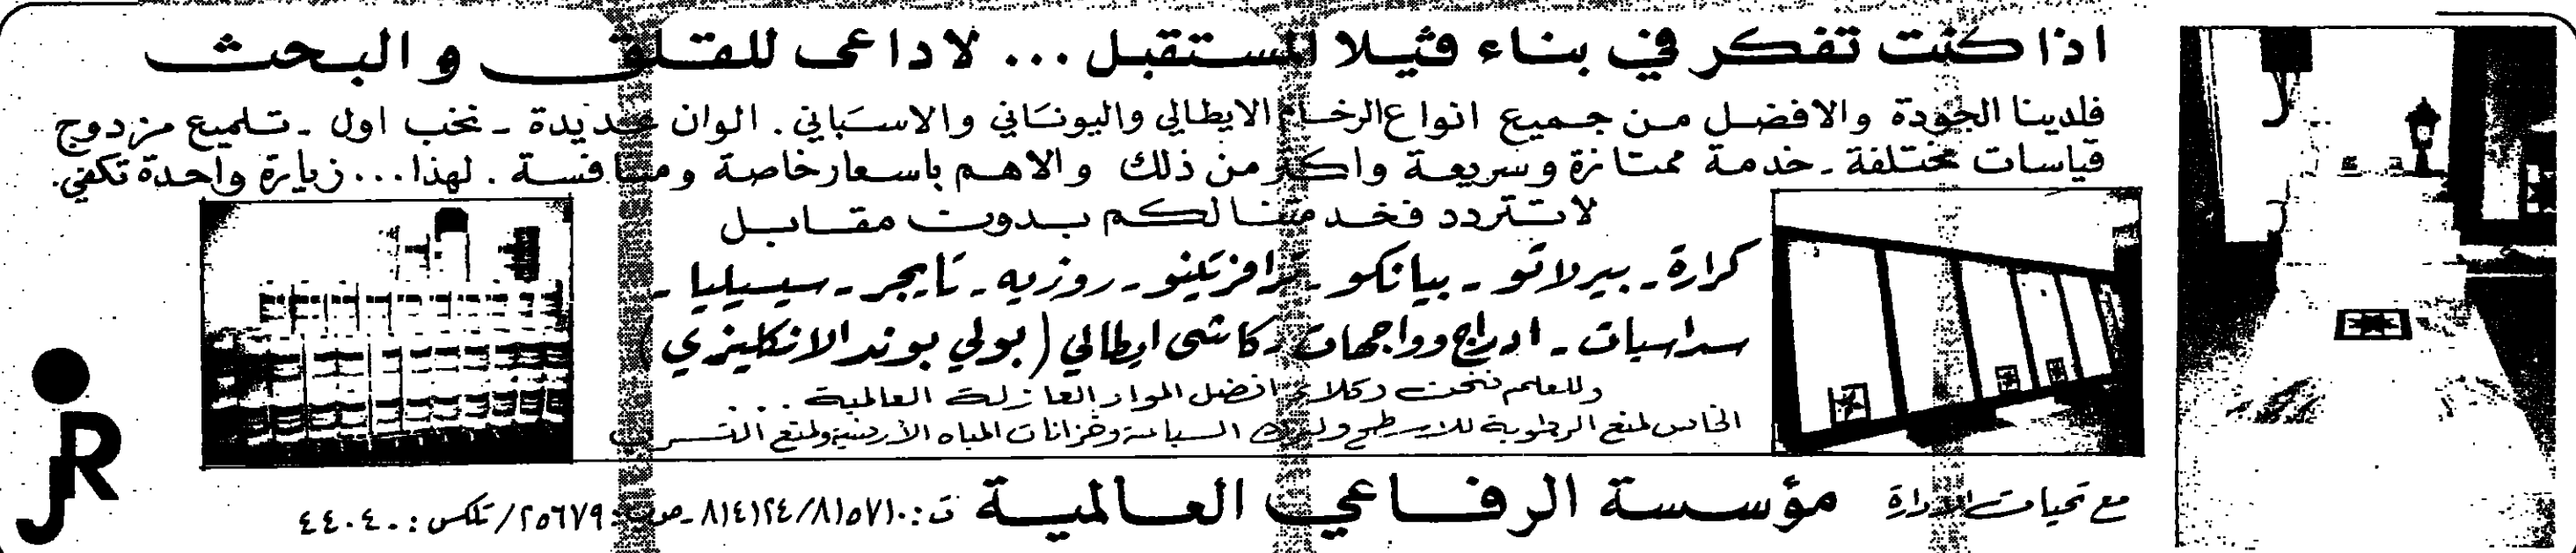 اذا كنت تفكر في بناء ڤيلا للمستقبل ... لا داعى للقلق والبحث
فلدينا الجودة والافضل من جميع انواع الرخام الايطالي واليوناني والاسباني . الوان جديدة - نخب اول - تلميع مزدوج
قياسات مختلفة - خدمة ممتازة وسريعة واكثر من ذلك والاهم باسعار خاصة ومنافسة . لهذا ... زيارة واحدة تكفي .
لا تتردد فخدمتنا لكم بدون مقابل
كرارة - بيرلاتو - بيانكو - ترافزتينو - روزريه - تايجر - سيسيليا -
سداسيات - ادراج وواجهات وكاشى ايطالي ( بولي بوند الانكليزي )
وللعلم نحن وكلاء افضل المواد العازلة العالمية ...
الخاص لمنع الرطوبة للاسطح ولبرك السباحة وخزانات المياه الأرضية ولمنع التسرب
مع تحيات الادارة مؤسسة الرفاعي العالمية ت : ٨١٥٧١٠ / ٨١٤١٢٤ - ص.ب : ٢٥٦٧٩ / تلكس : ٤٤٠٤٠
JR